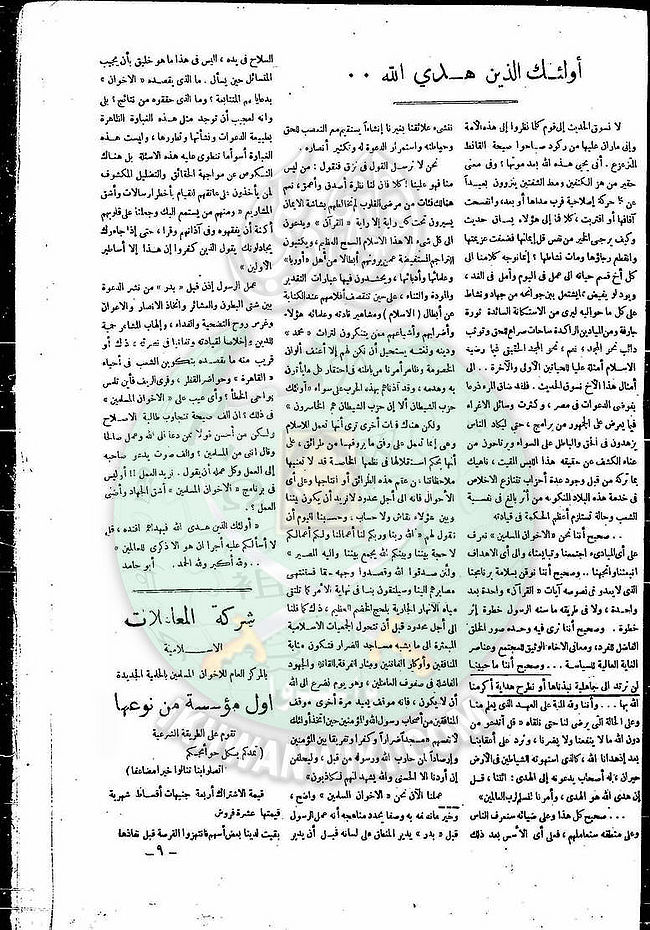 أولئك الذين هدى الله ..
لا نسوق الحديث إلى قوم كلما نظروا إلى هذه الأمة
وإلى ماران عليها من ركود صاحوا صيحة القانط
المتزعزع . أنى يحيى هذه الله بعد موتها ؟ وفى معنى
حقير من هز الكتفين ومط الشفتين ينزوون بعيداً
عن كل حركة إصلاحية قرب مداها أو بعد ، وانفسحت
آفاقها أو اقتربت ، كلا فما إلى هؤلاء يساق حديث
وكيف يرجى الخير من نفس قل إيمانها فضعفت عزيمتها
وانقطع رجاؤها ومات نشاطها ؟ إنما نوجه كلامنا إلى
كل أخ قسم حياته إلى عمل فى اليوم وأمل فى الغد ،
ويود لو يفيض بما يشتمل بين جوانحه من جهاد ونشاط
على كل ما حواليه ليرى من الاستكانة السائدة ثورة
جارفة ومن الميادين الراكدة ساحات صراع للحق وتوثب
دائب نحو المجد ، نعم ، نحو المجد الحقيقى فيما رضيه
الاسلام أمثلة عليا للحياتين الأولى والآخرة .. إلى
أمثال هذا الأخ نسوق الحديث . فلقد ضاق المرء ذرعا
بفوضى الدعوات فى مصر ، وكثرت وسائل الاغراء
فيما يعرض على الجمهور من برامج ، حتى ليكاد الناس
يزهدون فى الحق والباطل على السواء ويرتاحون من
عناء الكشف عن حقيقة هذا اللبس المقيت ، ناهيك
بما تركه من قبل وجود عدة أحزاب تتنازع الاخلاص
فى خدمة هذه البلاد المنكوبة من أثر بالغ فى نفسية
الشعب وحالة تستلزم أعظم الحكمة فى قيادته
... صحيح أننا نحن « الاخوان المسلمين » نعرف
على أى المبادىء اجتمعنا وتبايعنا ، وإلى أى الاهداف
انبعثنا واتجهنا .. وصحيح أننا نوقن بسلامة برنامجنا
الذى لا يعدو فى نصوصه آيات « القرآن » واحدة بعد
واحدة ، ولا فى طريقه ما سنه الرسول خطوة إثر
خطوة . وصحيح أننا نرى فيه وحده صور الخلق
الفاضل للفرد ، ومعانى الاخاء الوثيق للمجتمع وعناصر
الغاية العالية للسياسة ... وصحيح أننا ما حيينا
لن نرتد إلى جاهلية نبذناها أو نطرح هداية أكرمنا
الله بها ... وأننا وقد الله على العهد الذى يعلم منا
وعلى الحالة التى يرضى لنا حتى نلقاه « قل أندعو من
دون الله ما لا ينفعنا ولا يضرنا ، ونرد على أعقابنا
بعد إذ هدانا الله ، كالذى استهوته الشياطين فى الأرض
حيران ، له أصحاب يدعونه إلى الهدى : ائتنا ، قل
إن هدى الله هو الهدى ، وأمرنا لنسلم لرب العالمين »
... صحيح كل هذا وعلى ضيائه سنعرف الناس
وعلى منطقه سنعاملهم ، فعلى أى الأسس بعد ذلك
تنشىء علائقنا بغيرنا إنشاءاً يستقيم مع التعصب للحق
وحياطته واستمرار الدعوة له وتكثير أنصاره .
نحن لا نرسل القول فى نزق فنقول : من ليس
منا فهو علينا ! كلا فان لنا نظرة أصدق وأعمق ، نعم
هنالك فئات من مرضى القلوب لم تخالطهم بشاشة الايمان
يسيرون تحت كل راية إلا راية « القرآن » ويدعون
إلى كل شىء إلا هذا الاسلام السمح العظيم ، ويكتبون
التراجم المستفيضة عمن يرونهم أبطالا من أهل « أوربا »
وعلمائها وأدبائها ، ويحشدون فيها عبارات التقدير
والمودة والثناء ، على حين تنقصف أقلامهم عند الكتابة
عن أبطال ( الاسلام ) ومشاهير قادته وعلمائه هؤلاء
وأضرابهم وأشياعهم ممن يتنكرون لتراث « محمد »
ودينه ولغته يستحيل أن نكن لهم إلا أعنف ألوان
الخصومة وظاهر أمرنا من باطنه فى احتقار كل ما يأترن
به وهدمه ، وقد آذناهم بهذه الحرب على سواء « أولئك
حزب الشيطان ألا إن حزب الشيطان هم الخاسرون »
ولكن هناك فئات أخرى ترى أنها تعمل للاسلام
وهى إنما تعمل على وفق ما يروقها من طرائق ، على
أنها بحكم استقلالها فى نظمها الخاصة قد لا تعنيها
ملاحظاتنا ، عن عقم هذه الطرائق أو انتاجها وعلى أى
الأحوال فانه الى أجل محدود لا نريد أن يكون بيننا
وبين هؤلاء نقاش ولا حساب ، وحسبنا اليوم أن
نقول لهم « الله ربنا وربكم لنا أعمالنا ولكم أعمالكم
لا حجة بيننا وبينكم الله يجمع بيننا واليه المصير »
ولئن صدقوا الله وقصدوا وجهه حقا فستنتهى
مصائرهم الينا وسيلتقون بنا فى نهاية الأمر كما تلتقى
مياه الأنهار الجارية بلجج الخضم العظيم ، ذلك كما قلنا
الى أجل محدود قبل أن تتحول الجمعيات الاسلامية
المبعثرة الى ما يشبه مساجد الضرار فتكون مثابة
المنافقين وأوكار الفاتنين ومثار الفرقة القائمة والجهود
الفاشلة فى صفوف العاملين ، وهو يوم نضرع الى الله
أن لا يكون ، فانه موقف يعيد مرة أخرى ، موقف
المنافقين من أصحاب رسول الله والمؤمنين حين اتخذ أولئك
لأنفسهم « مسجداً ضراراً وكفرا وتفريقا بين المؤمنين
وإرصاداً لمن حارب الله ورسوله من قبل ، وليحلفن
إن أردنا إلا الحسنى والله يشهد إنهم لكاذبون »
عملنا الآن نحن « الاخوان المسلمين » واضح ،
وخير ما نمه به وصفا يحدد مناهجه أنه عمل الرسول
قبل « بدر » يدير المنفان على لسانه قبل أن يدير
السلاح فى يده ، أليس فى هذا ما هو خليق بأن يجيب
المتسائل حين يسأل . ما الذى يقصده « الاخوان »
بدعاياتهم المتتابعة ؟ وما الذى حققوه من نتائج ؟ بلى
وانه لعجيب أن توجد مثل هذه الغباوة الظاهرة
بطبيعة الدعوات ونشأتها وتطورها ، وليست هذه
الغباوة أسوأ مما تنطوى عليه هذه الاسئلة بل هناك
النكوص عن مواجهة الحقائق والتضليل المكشوف
لمن يأخذون على عاتقهم القيام بأخطر رسالات وأشق
المشاريع « ومنهم من يستمع اليك وجعلنا على قلوبهم
أكنة أن يفقهوه وفى آذانهم وقرا ، حتى إذا جاءوك
يجادلونك يقول الذين كفروا إن هذا إلا أساطير
الأولين »
عمل الرسول إذن قبل « بدر » من نشر الدعوة
بين شتى البطون والعشائر واتخاذ الأنصار والأعوان
وغرس روح التضحية والفداء ، وإلهاب المشاعر حمية
للدين وإخلاصا لقيادته وتفانيا فى نصرته ، ذلك أو
قريب منه ما نقصده بتكوين الشعب فى أحياء
« القاهرة » وحواضر القطر ، وقرى الريف فأين تلمس
نواحى الخطأ ؟ وأى عيب على « الاخوان المسلمين »
فى ذلك ؟ ان ألف صيحة تتجاوب طالبة الاصلاح
ولكن من أحسن قولا ممن دعا الى الله وعمل صالحا
وقال اننى من المسلمين ؟ وألف صوت يدعو صاحبه
إلى العمل وكل عمله أن يقول . نريد العمل !! أوليس
فى برنامج « الاخوان المسلمين » أشق الجهاد وأضنى
العمل ؟ .
« أولئك الذين هدى الله فبهداهم اقتده ، قل
لا أسألكم عليه أجرا ان هو الا ذكرى للعالمين »
.. والله أكبر ولله الحمد . أبو حامد
شركة المعاملات
الاسلامية
بالمركز العام للاخوان المسلمين بالحلمية الجديدة
أول مؤسسة من نوعها
تقوم على الطريقة الشرعية
( تمدكم بكل حوائجكم
اتصلوا بنا تنالوا خيرا مضاعفا )
قيمة الاشتراك أربعة جنيهات أقساط شهرية
قيمتها عشرة قروش
بقيت لدينا بعض أسهم فانتهزوا الفرصة قبل نفاذها
- ٩ -